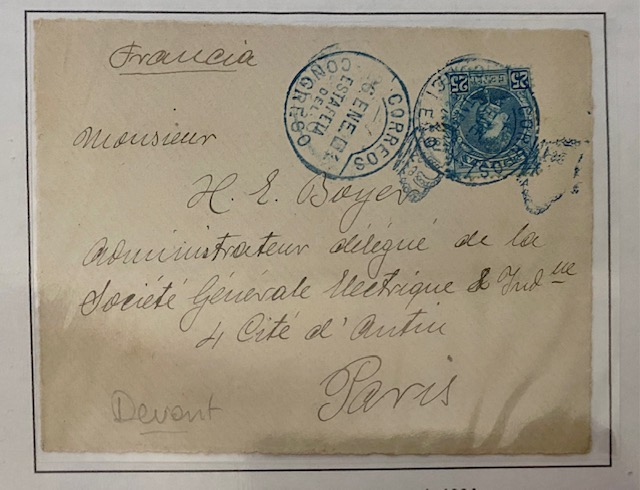 Francia
CORREOS
ENE. 04
ESTAFETA
DEL
CONGRESO
25
25
Monsieur
H. E. Boyer
Administrateur délégué de la
Société Générale Electrique & Ind^lle
4 Cité d'Antin
Paris
Devant